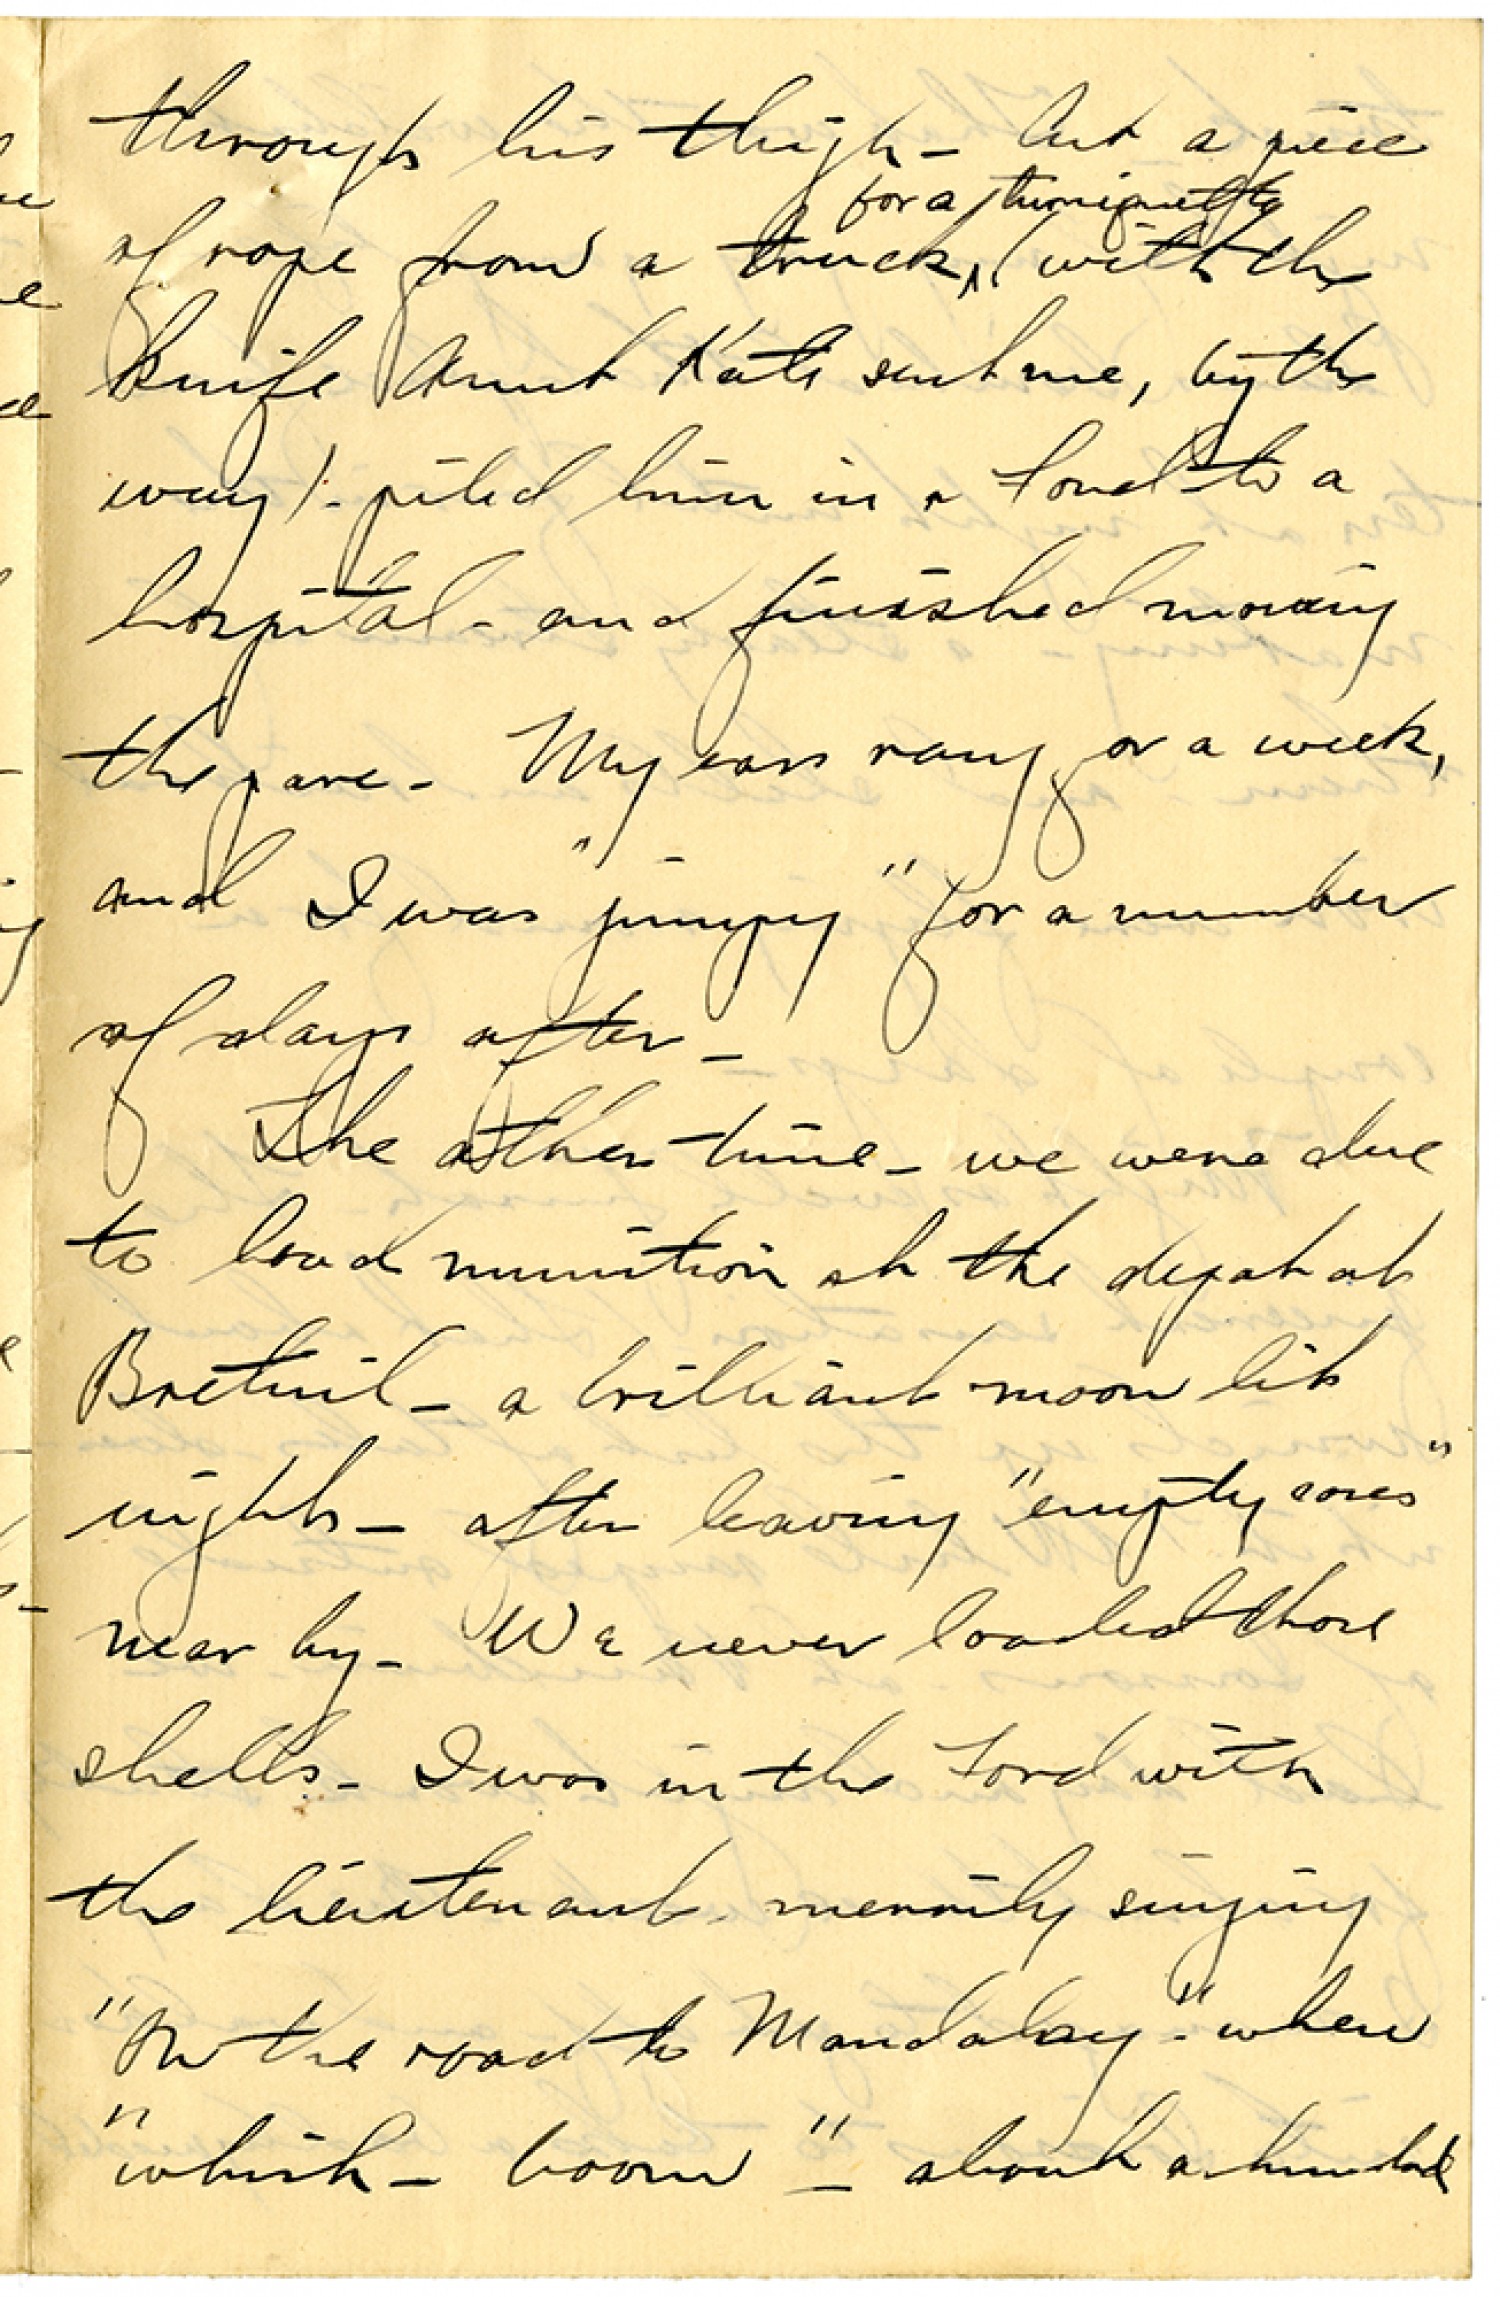 through his thigh - Cut a piece
for a turniquette
of rope from a truck, (with the
knife Aunt Kate sent me, by the
way) - piled him in a Ford to a
hospital - and finished moving
the parc - My ears rang for a week,
and I was "jumpy" for a number
of days after -
The other time - we were due
to load munition at the depot at
Bretuil - a brilliant moon lit
night - after leaving "empty cases"
near by - We never loaded those
shells - I was in the Ford with
the lieutenant merrily singing
"On the road to Mandalay" - when
"whish - boom" - about a hundred